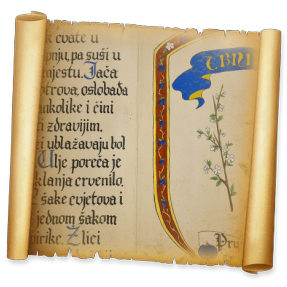 k cvate u
pnju, pa suši u
mjestu. Jača
otrova, oslobađa
ankolike i čini
ti zdravijim.
ti ublažavaju bol
Ulje poreča je
klanja crvenilo.
šake cvjetova i
jednom šakom
birike. Z lici
TRNI
Pru